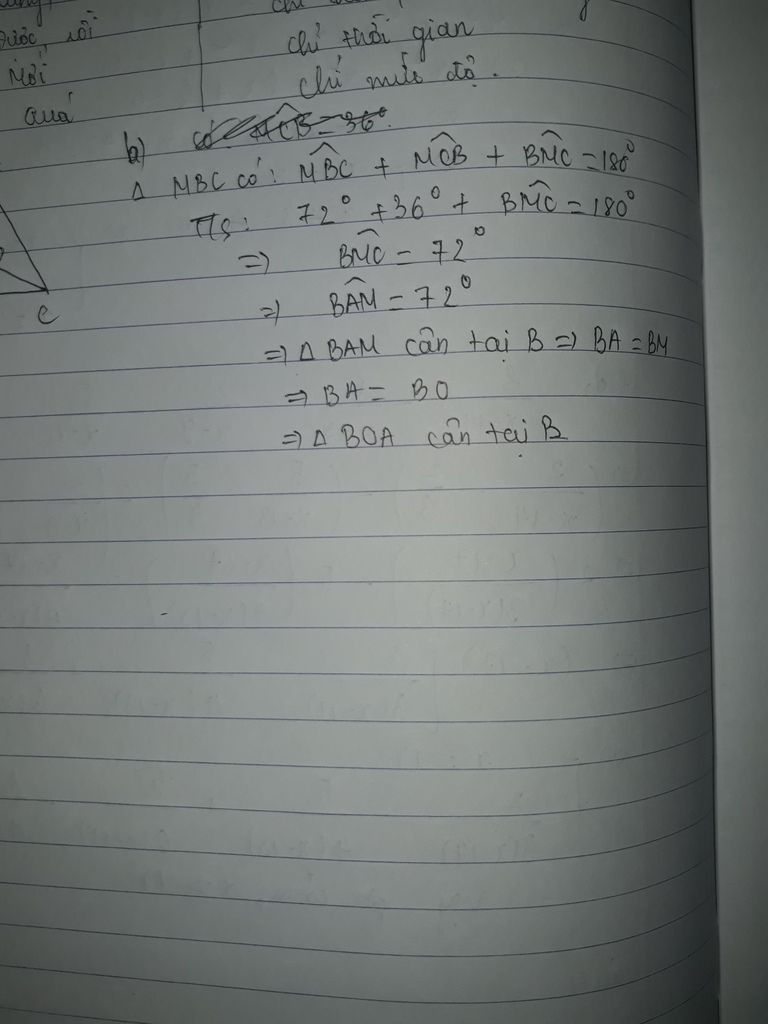 được rồi
chỉ thời gian
mới
chỉ mức độ.
quá
b) Có: ACB = 36°.
Δ MBC có: MBC + MCB + BMC = 180°
T/s: 72° + 36° + BMC = 180°
=> BMC = 72°
=> BAM = 72°
=> Δ BAM cân tại B => BA = BM
=> BA = BO
=> Δ BOA cân tại B
C